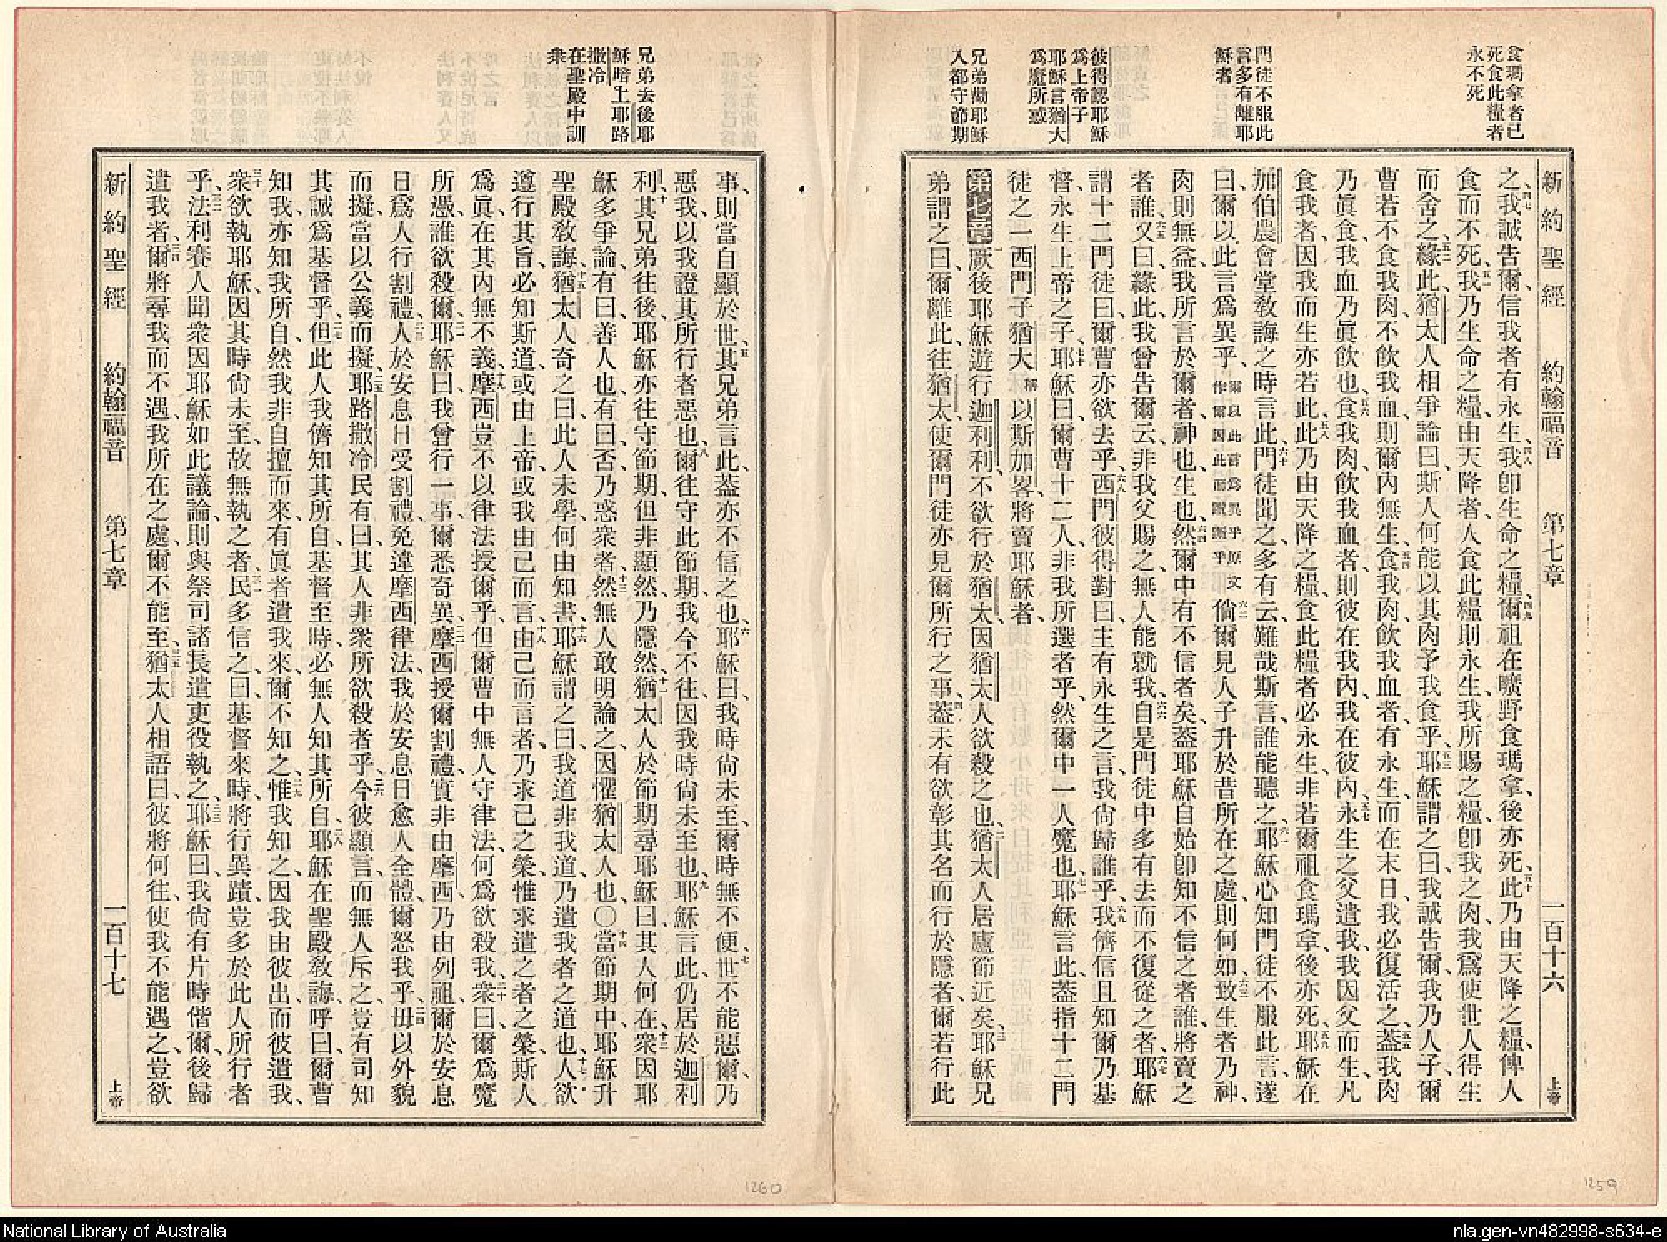 食瑪拿者已
死食此糧者
永不死
門徒不服此
言多有離耶
穌者
彼得認耶穌
為上帝子
耶穌言猶大
為魔所惑
兄弟勸耶穌
入都守節期
新約聖經 約翰福音 第七章 一百十六 上帝
之、我誠告爾、信我者有永生、我卽生命之糧、爾祖在曠野食瑪拿、後亦死、此乃由天降之糧、俾人
食而不死、我乃生命之糧、由天降者、人食此糧、則永生、我所賜之糧、卽我之肉、我爲使世人得生
而舍之、緣此猶太人相爭論曰、斯人何能以其肉予我食乎、耶穌謂之曰、我誠告爾、我乃人子、爾
曹若不食我肉、不飲我血、則爾內無生、食我肉飲我血者、有永生、而在末日、我必復活之、蓋我肉
乃眞食、我血乃眞飲也、食我肉、飲我血者、則彼在我內、我在彼內、永生之父遣我、我因父而生、凡
食我者、因我而生、亦若此、此乃由天降之糧、食此糧者必永生、非若爾祖食瑪拿、後亦死、耶穌在
加伯農會堂教誨之時言此、門徒聞之、多有云、難哉斯言、誰能聽之、耶穌心知門徒不服此言、遂
曰、爾以此言爲異乎、爾以此言爲異乎原文作爾因此而躓乎 倘爾見人子升於昔所在之處、則何如、致生者乃神、
肉則無益、我所言於爾者、神也、生也、然爾中有不信者矣、蓋耶穌自始卽知不信之者誰、將賣之
者誰、又曰、緣此我曾告爾云、非我父賜之、無人能就我、自是門徒中多有去而不復從之者、耶穌
謂十二門徒曰、爾曹亦欲去乎、西門彼得對曰、主有永生之言、我尙歸誰乎、我儕信且知爾乃基
督、永生上帝之子、耶穌曰、爾曹十二人、非我所選者乎、然爾中一人魔也、耶穌言此、蓋指十二門
徒之一、西門子猶大、稱以斯加畧、將賣耶穌者、
第七章 厥後耶穌遊行迦利利、不欲行於猶太、因猶太人欲殺之也、猶太人居廬節近矣、耶穌兄
弟謂之曰、爾離此、往猶太、使爾門徒亦見爾所行之事、蓋未有欲彰其名而行於隱者、爾若行此
兄弟去後耶
穌暗上耶路
撒冷
在聖殿中訓
衆
事、則當自顯於世、其兄弟言此、蓋亦不信之也、耶穌曰、我時尙未至、爾時無不便、世不能惡爾、乃
惡我、以我證其所行者惡也、爾往守此節期、我今不往、因我時尙未至也、耶穌言此、仍居於迦利
利、其兄弟往後、耶穌亦往守節期、但非顯然、乃隱然、猶太人於節期尋耶穌曰、其人何在、衆因耶
穌多爭論、有曰、善人也、有曰、否、乃惑衆者、然無人敢明論之、因懼猶太人也、○當節期中、耶穌升
聖殿教誨、猶太人奇之曰、此人未學、何由知書、耶穌謂之曰、我道非我道、乃遣我者之道也、人欲
遵行其旨、必知斯道或由上帝、或我由己而言、由己而言者、乃求己之榮、惟求遣之者之榮、斯人
爲眞、在其內無不義、摩西豈不以律法授爾乎、但爾曹中無人守律法、何爲欲殺我、衆曰、爾爲魔
所憑、誰欲殺爾、耶穌曰、我曾行一事、爾悉奇異、摩西授爾割禮、實非由摩西、乃由列祖、爾於安息
日爲人行割禮、人於安息日受割禮、免違摩西律法、我於安息日愈人全體、爾怒我乎、毋以外貌
而擬、當以公義而擬、耶路撒冷民有曰、其人非衆所欲殺者乎、今彼顯言、而無人斥之、豈有司知
其誠爲基督乎、但此人我儕知其所自、基督至時、必無人知其所自、耶穌在聖殿教誨、呼曰、爾曹
知我、亦知我所自、然我非自擅而來、有眞者遣我來、爾不知之、惟我知之、因我由彼出、而彼遣我、
衆欲執耶穌、因其時尙未至、故無執之者、民多信之曰、基督來時、將行異蹟、豈多於此人所行者
乎、法利賽人聞衆因耶穌如此議論、則與祭司諸長遣吏役執之、耶穌曰、我尙有片時偕爾、後歸
遣我者、爾將尋我而不遇、我所在之處、爾不能至、猶太人相語曰、彼將何往、使我不能遇之、豈欲
新約聖經 約翰福音 第七章 一百十七 上帝
1260
1259
National Library of Australia
nla.gen-vn482998-s634-e